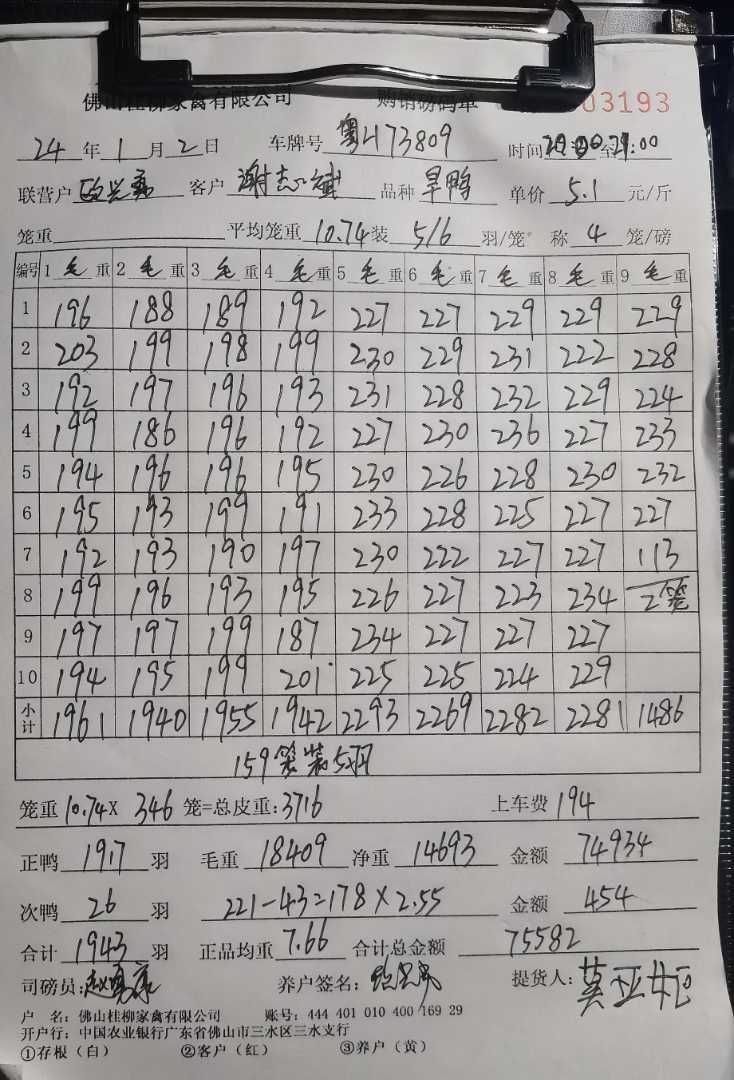 佛山桂柳家禽有限公司 购销磅码单 03193
24 年 1 月 2 日 车牌号 粤H73809 时间 至 21:00
联营户 客户 谢志斌 品种 旱鸭 单价 5.1 元/斤
笼重 平均笼重 10.74 装 5/6 羽/笼 称 4 笼/磅
编号 1 毛 重 2 毛 重 3 毛 重 4 毛 重 5 毛 重 6 毛 重 7 毛 重 8 毛 重 9 毛 重
1 196 188 189 192 227 227 229 229 229
2 203 199 198 199 230 229 231 222 228
3 192 197 196 193 231 228 232 229 224
4 199 186 196 192 227 230 236 227 233
5 194 196 196 195 230 226 228 230 232
6 195 193 199 191 233 228 225 227 227
7 192 193 190 197 230 222 227 227 113
8 199 196 193 195 226 227 223 234 2笼
9 197 197 199 187 234 227 227 227
10 194 195 199 201 225 225 224 229
小计 1961 1940 1955 1942 2293 2269 2282 2281 1486
159笼装5羽
笼重 10.74 X 346 笼=总皮重: 3716 上车费 194
正鸭 1917 羽 毛重 18409 净重 14693 金额 74934
次鸭 26 羽 221-43=178×2.55 金额 454
合计 1943 羽 正品均重 7.66 合计总金额 75582
司磅员: 养户签名: 提货人: 莫亚
户 名: 佛山桂柳家禽有限公司 账号: 444 401 010 400 169 29
开户行: 中国农业银行广东省佛山市三水区三水支行
①存根（白） ②客户（红） ③养户（黄）